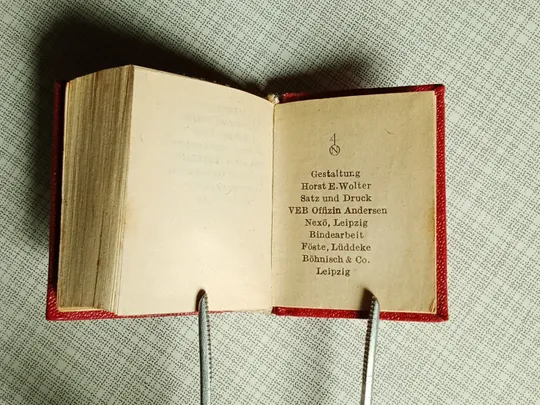 Gestaltung
Horst E. Wolter
Satz und Druck
VEB Offizin Andersen
Nexö, Leipzig
Bindearbeit
Föste, Lüddeke
Böhnisch & Co.
Leipzig